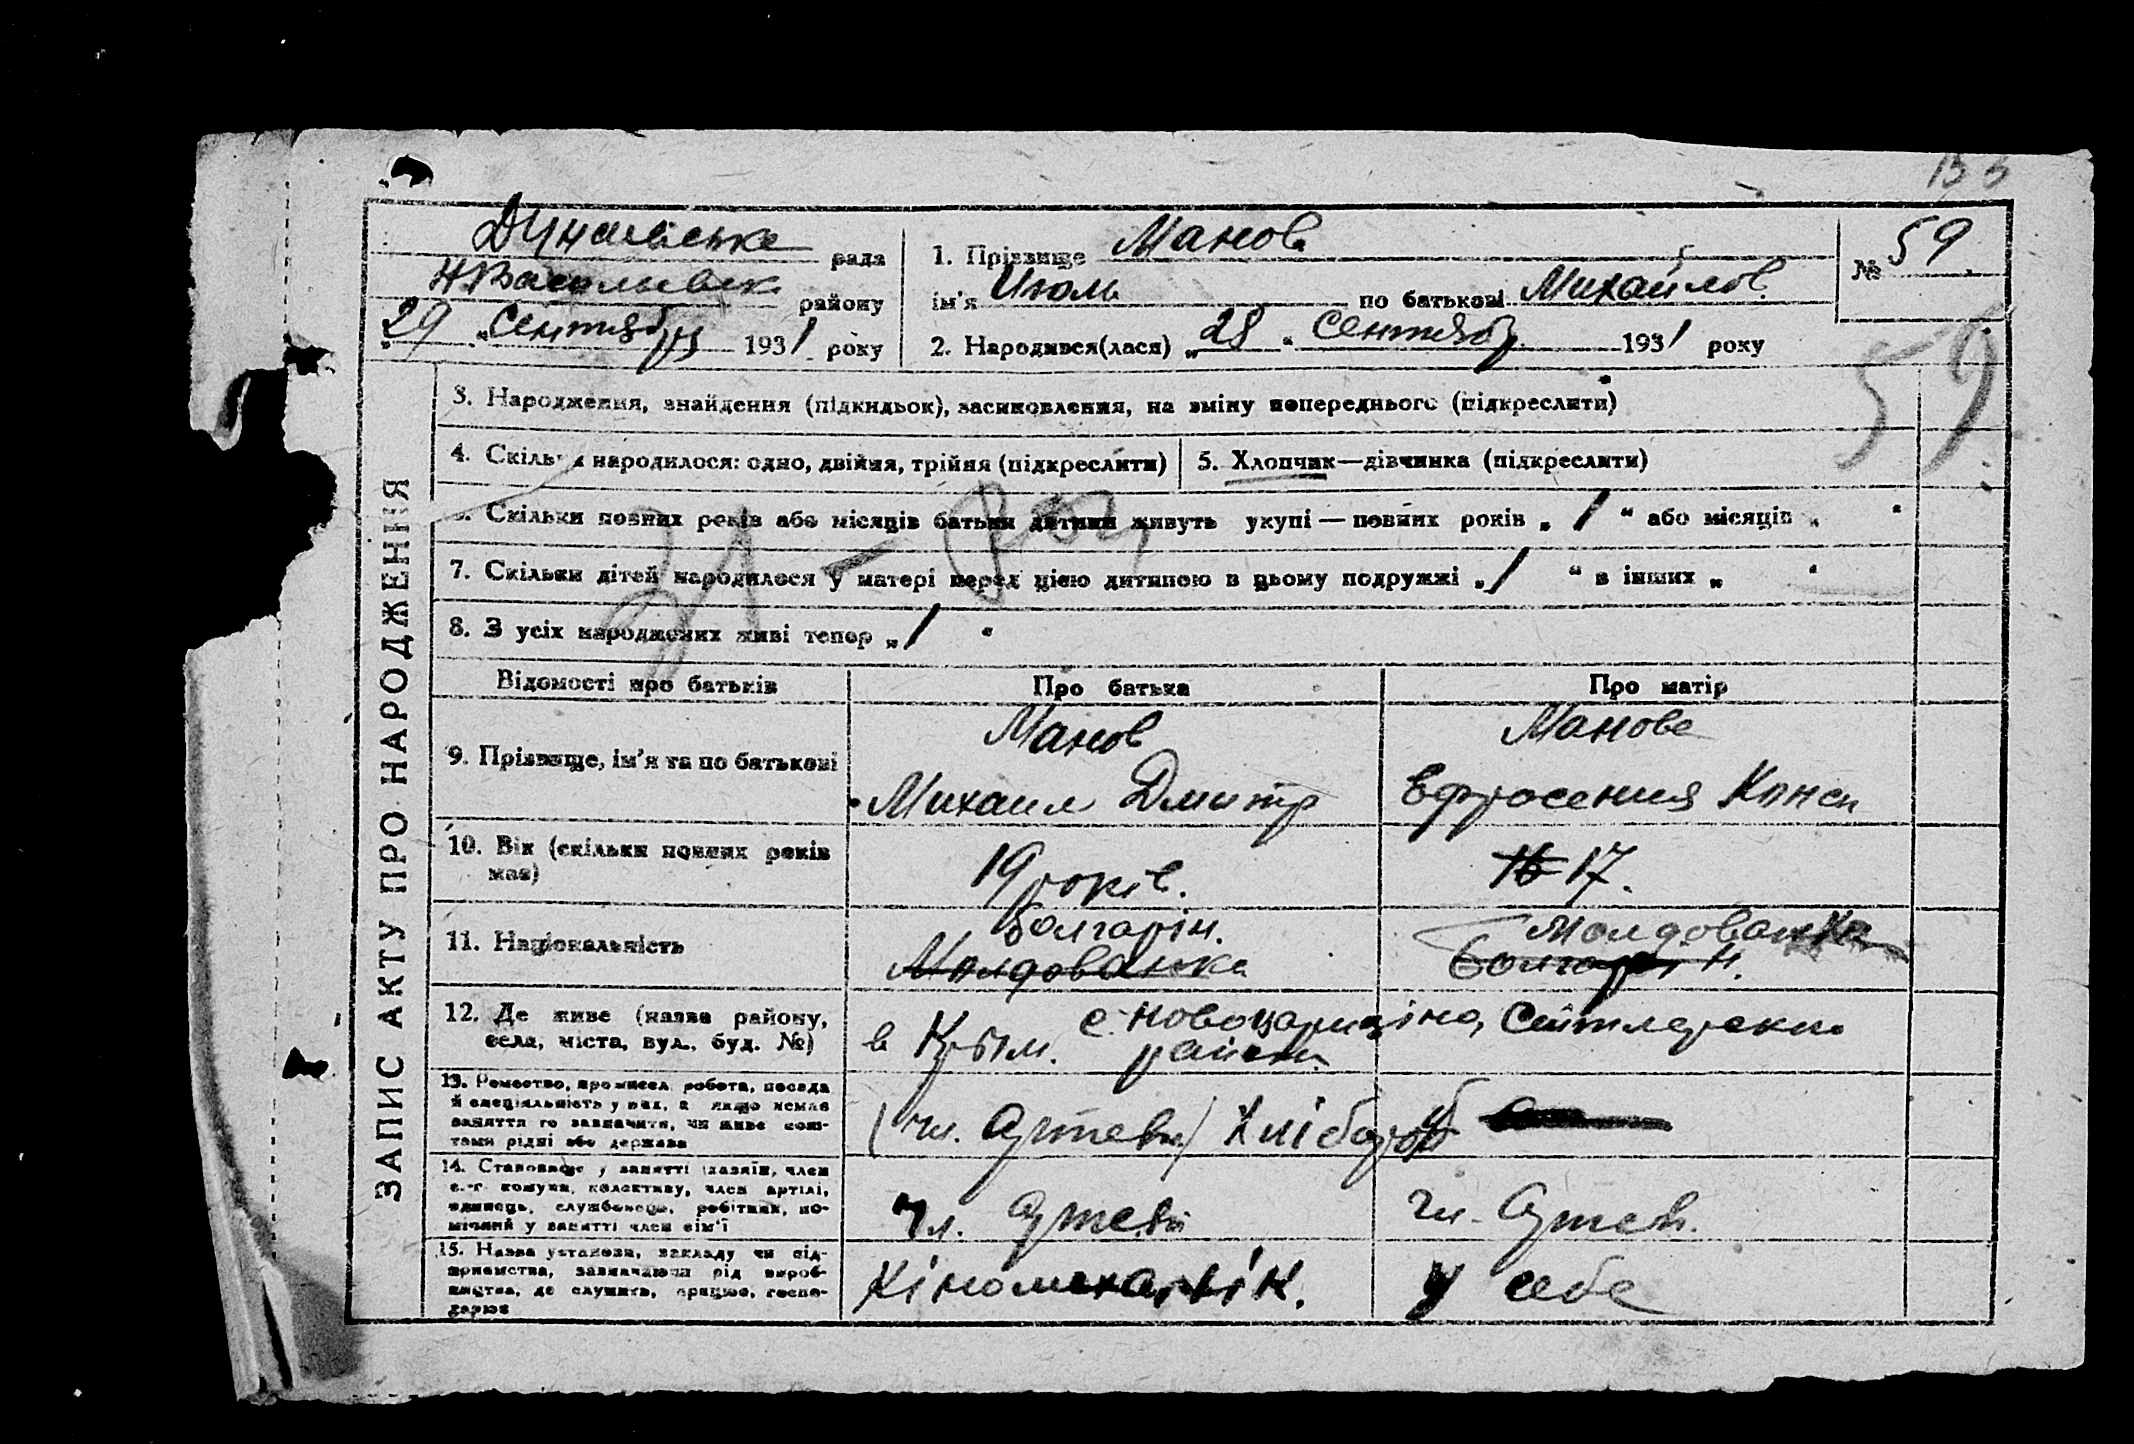 153
Дунаївське рада
Н Васильевск. району
„29 „Сентября 1931 року
1. Прізвище Манов
ім'я Июль по батькові Михайлов.
№ 59
2. Народився(лася) „28 " Сентябр 1931 року
59
ЗАПИС АКТУ ПРО НАРОДЖЕННЯ
3. Народження, знайдення (підкидьок), засиновлення, на зміну попереднього (підкреслити)
4. Скільки народилося: одно, двійня, трійня (підкреслити)
5. Хлопчик—дівчинка (підкреслити)
6. Скільки повних років або місяців батьки дитини живуть укупі — повних років „ 1 " або місяців „ "
7. Скільки дітей народилося у матері перед цією дитиною в цьому подружжі „ 1 " в інших „ "
8. З усіх народжених живі тепер „ 1 "
Відомості про батьків
Про батька
Про матір
9. Прізвище, ім'я та по батькові
Манов
Михаил Дмитр
Манова
Ефросения Конст
10. Вік (скільки повних років
має)
19 років.
16 17.
11. Національність
болгарін.
Молдованка
Молдованка
болгарін.
12. Де живе (назва району,
села, міста, вул., буд. №)
в Крым. с. Новоцарицино, Сейтлерский
район
13. Ремество, промисел, робота, посада
й спеціяльність у них, а якщо немає
заняття то зазначити, чи живе кош-
тами рідні або держави
(чл. Артели) Хлібороб
14. Становище у занятті (хазяїн, член
с.-г. комуни, колективу, член артілі,
одинець, службовець, робітник, по-
мічний у занятті член сім'ї
чл. Артели
чл. Артел.
15. Назва установи, закладу чи під-
приємства, зазначаючи рід вироб-
ництва, де служить, працює, госпо-
дарює
Кіномеханік.
У себе